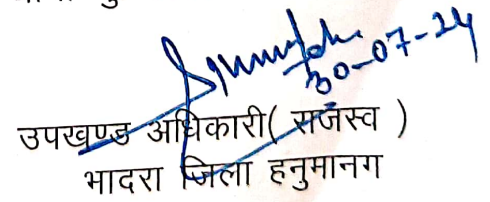 30-07-24
उपखण्ड अधिकारी( राजस्व )
भादरा जिला हनुमानग